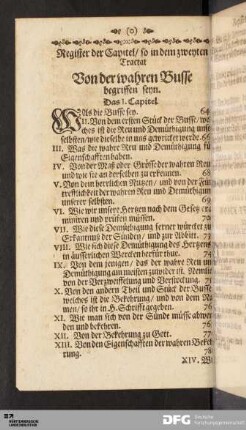 (o)
Register der Capitel/ so in dem zweyten
Tractat
Von der wahren Busse
begriffen seyn.
Das I. Capitel.
WAs die Busse sey. 64
II. Von dem ersten Stück der Busse/ wel-
ches ist die Reu und Demühtigung unser
selbsten/ wie dieselbe in uns gewircket werde. 66
III. Was die wahre Reu und Demühtigung für
Eigenschafften haben.
IV. Von der Maß oder Grösse der wahren Reu
und wie sie an derselben zu erkennen. 68
V. Von dem herrlichen Nutzen/ und von der
trefflichkeit der wahren Reu und Demühtigung
unserer selbsten. 69
VI. Wie wir unsere Hertzen nach dem Gesetz
und prüfen müssen. 70
VII. Wie diese Demühtigung ferner würcket
Erkantnus der Sünden/ und zur
VIII. Wie sich diese Demühtigung des Hertzens
in äusserlichen Wercken herfür thue. 74
IX. Von dem jenigen/ das der wahre Reu
Demühtigung am meisten zuwider ist. Nemlich
von der Verzweiffelung und Verstockung. 75
X. Von dem andern Theil und Stück der Busse
welches ist die Bekehrung/ und von dem Na-
men/ so ihr in H. Schrifft gegeben. 76
XI. Wie man sich von der Sünde müsse abwen-
den und bekehren. 76
XII. Von der Bekehrung zu Gott. 77
XIII. Von den Eigenschafften der wahren Bekeh-
rung. 78
XIV. Wi
DFG